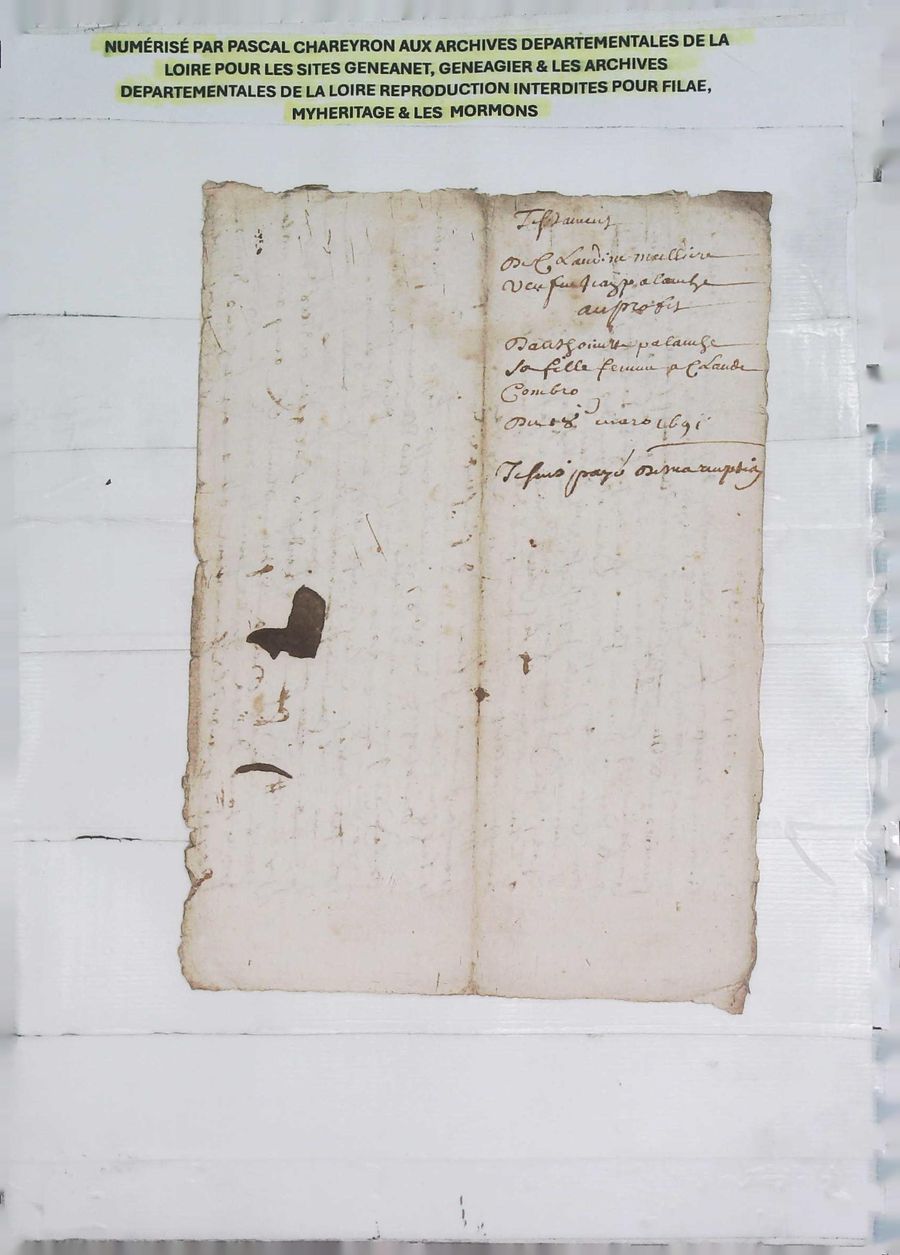 NUMÉRISÉ PAR PASCAL CHAREYRON AUX ARCHIVES DEPARTEMENTALES DE LA
LOIRE POUR LES SITES GENEANET, GENEAGIER & LES ARCHIVES
DEPARTEMENTALES DE LA LOIRE REPRODUCTION INTERDITES POUR FILAE,
MYHERITAGE & LES MORMONS
Testament
De Claudine
palanche
au profit
palanche
sa fille femme a Claude
Combro
Du 18 mars 1691
Je suis payé de ma